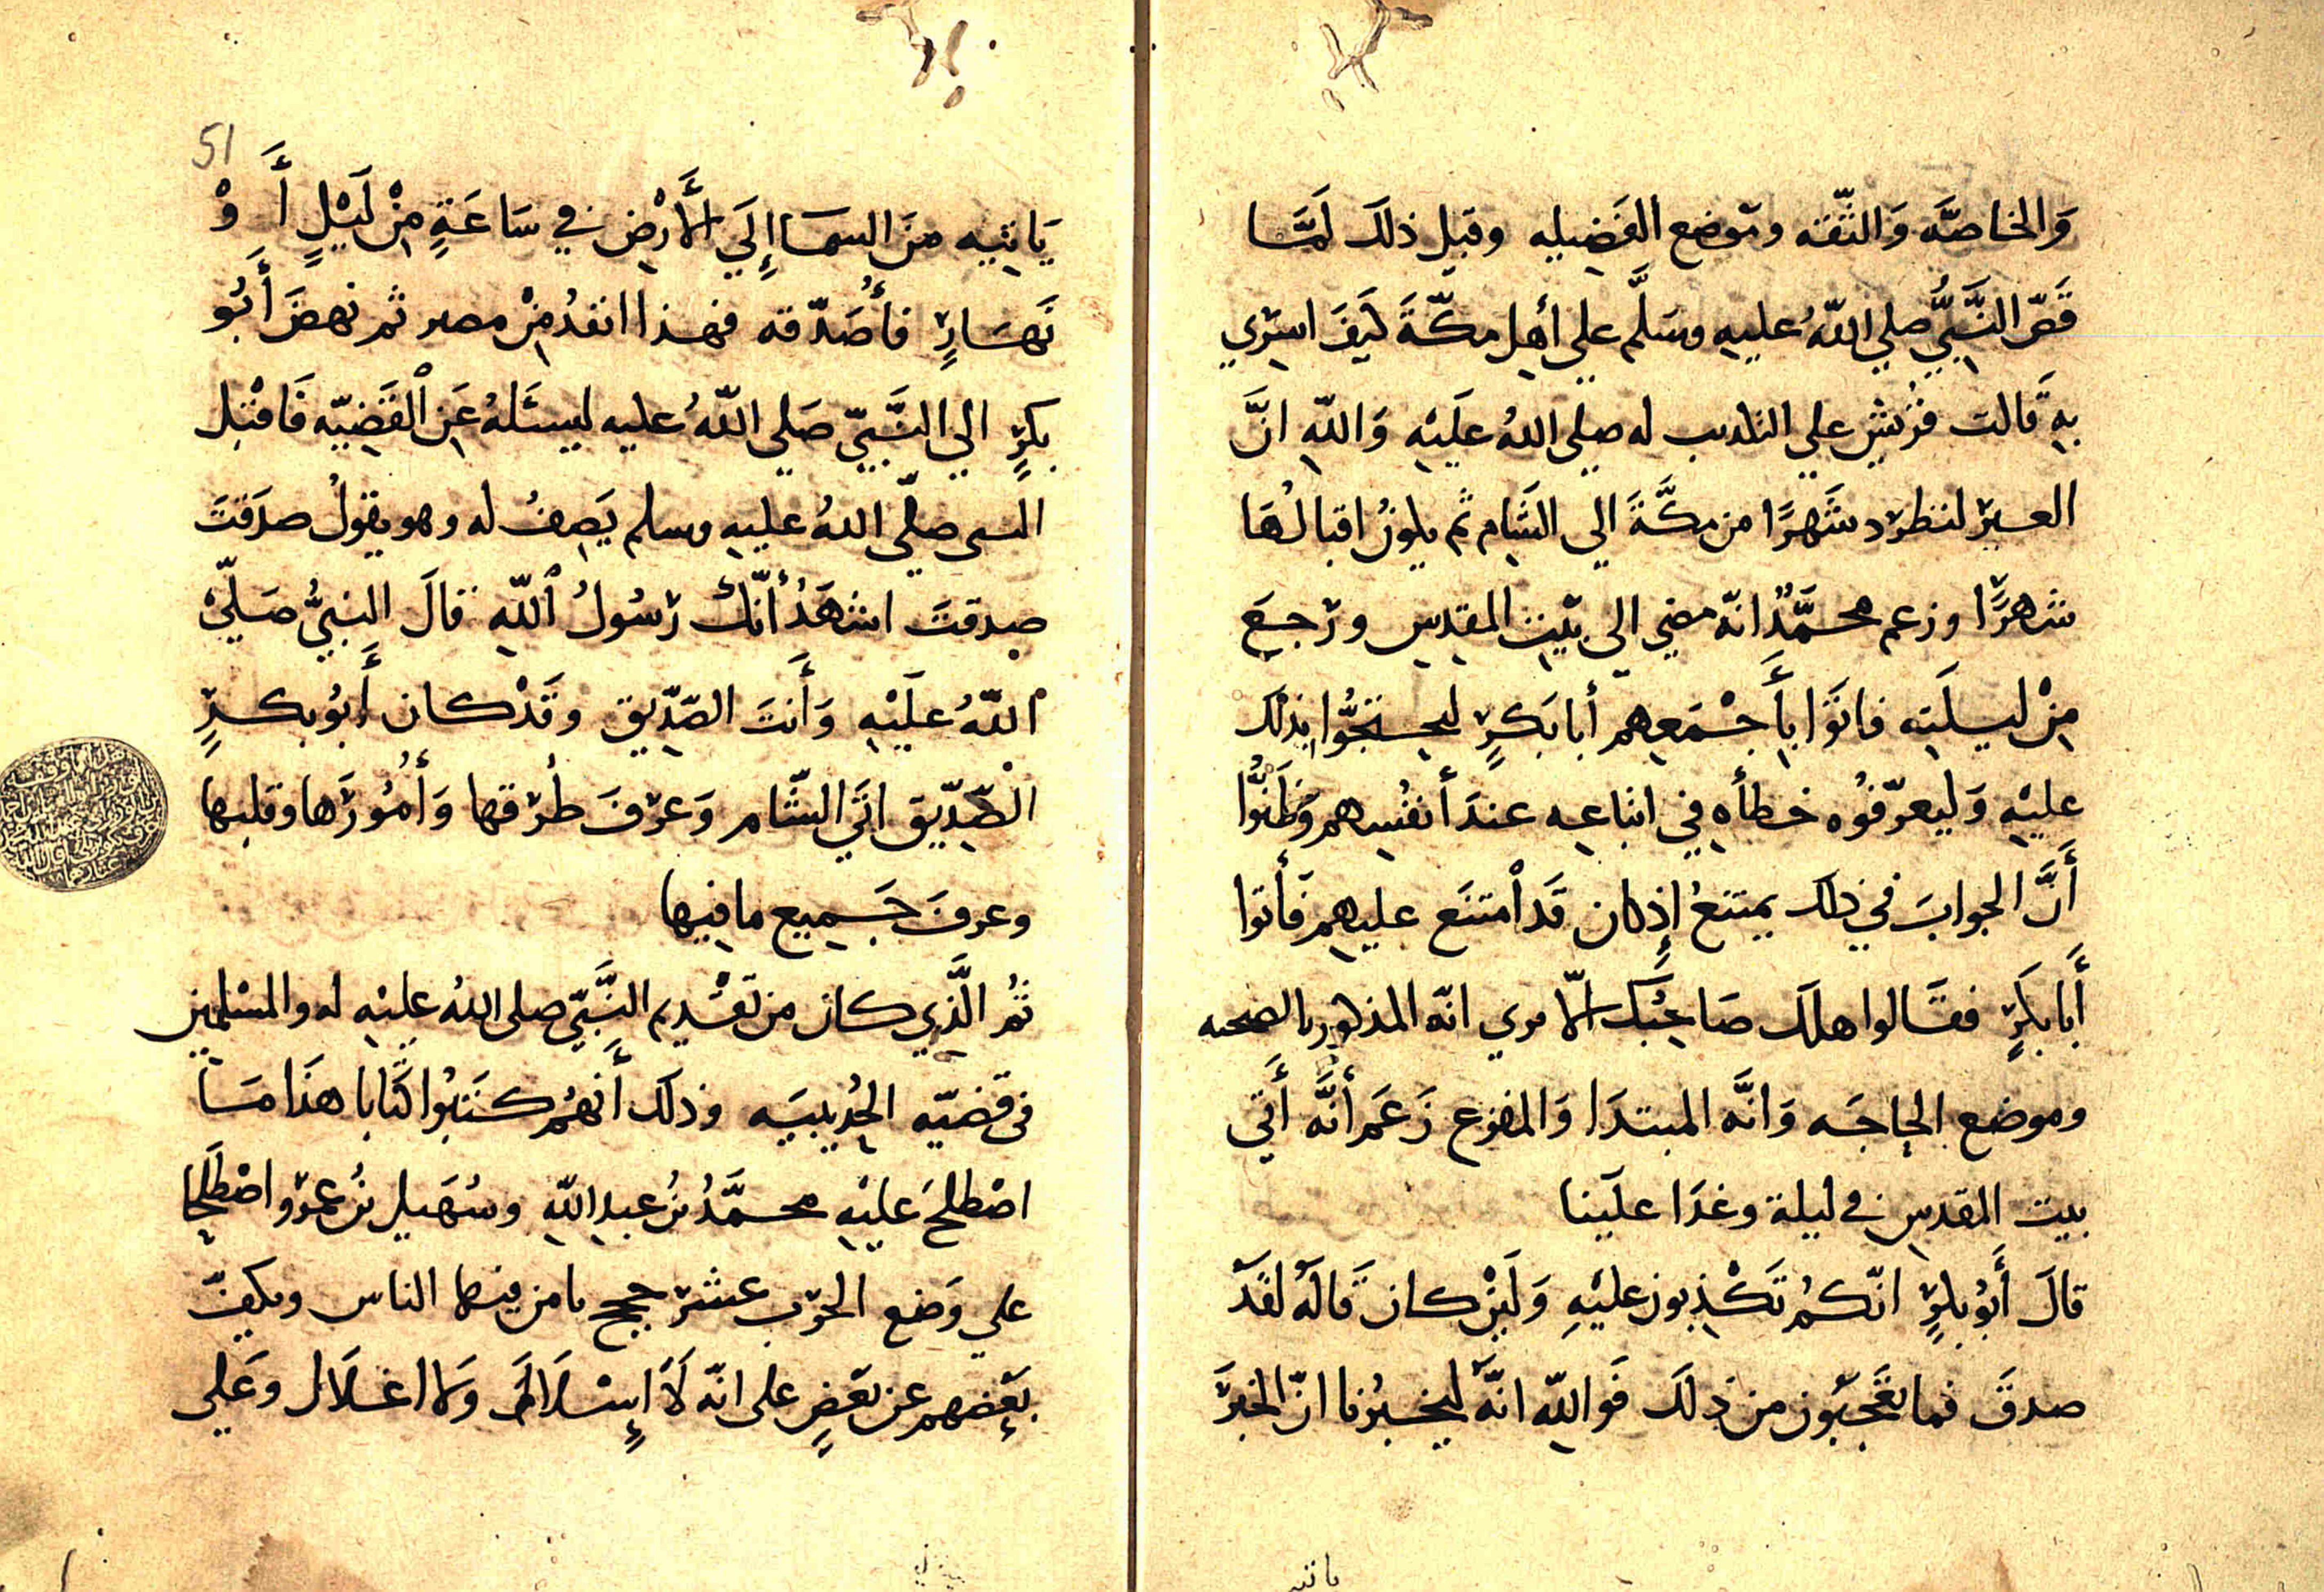 وَالخاصَّه وَالثّقته وموَضع الفَضِيله وقبل ذلك لَمَّا
قَصّ النَّبِيُّ صلي اللّهُ عليه وسَلَّم علي أهل مكّةَ كيَفَ اسرِي
بهِ قَالت قريش علي التكذيب له صلى اللهُ علَيْهِ وَاللّهِ انَّ
العير لتطرد شَهرًا من مكَّةَ الي الشَّام ثم يكونُ اقبالُهَا
شهرًا وزعم محمَّدٌ انهّ مضي الي بَيت المقدس ورجعَ
مِنْ ليلَته فاتوَا بِأَجْمَعِهم أبا بَكرٍ ليحتجُّوا بذلك
عليْهِ وَليعرّفوُه خطأه في اتباعه عندَ أنفُسِهم وَظَنُّوا
أَنَّ الجوابَ في ذلك يمتنعُ إِذ كان قَد امْتنَع عليهِم فَأتوا
أَبا بكَرٍ فقَالوا هلك صَاحِبُك الاّ مري انهّ المذكور بالصحبه
وموضع الحاجَه وَانَّه المبتدَا وَالمفزع زَعَم أنَّه أَتي
بيت المقدس في ليلة وغدَا علَينا
قالَ أَبُو بكرٍ انّكمُ تَكْذِبون عليْهِ وَلَئِنْ كان قَالَهُ لقَدْ
صدقَ فما يعَجّبَون من ذِلك فَواللّهِ انَّه ليُخبرُنا انّ الخبرَ
ياتيه
يَاتيِه منَ السمَا إِلَي الأَرْضِ في سَاعَةٍ مِنْ لَيْلٍ أَوْ
نَهَارٍ فأُصَدّقه فهذا ابعدُ مِنْ مصر ثم نهضَ أَبُو
بكرٍ الي النَّبيّ صَلي اللّهُ عليه ليسئَلهُ عَنِ القضَيّه فَاقبل
النبي صلّي اللهُ عليهِ وسلم يَصِفُ له وهو يقوُلُ صدَقتَ
صدقتَ اشهَدُ أنّك رسُولُ اللّهِ قالَ النبيُّ صَلّي
اللّهُ علَيْهِ وَأَنتَ الصّدِّيق وقَدْ كان أَبُو بكرٍ
الصّدِّيق اتَي الشّام وَعرفَ طرقها وَأُمُورَها وقلبها
وعرفَ جَميع ما فيِها
ثمُ الَّذِي كان من تقَدْيم النَّبيّ صلى اللهُ عليْهِ له والمسْلمين
في قَضيّه الحُدُيبيَه وذلك أَنهمُ كتَبُوا كتَابا هذَا مَا
اصْطلحَ عليْهِ محمَّدُ بنُ عبد اللّهِ وسُهَيل بنُ عمرو اصْطَلحَا
علي وَضع الحَرب عشر حجج يامن فيها الناس ويكفّ
بعَضهم عن بَعضٍ على انهّ لاَ إِسْلاَلَ وَلا اغلاَل وعَلي